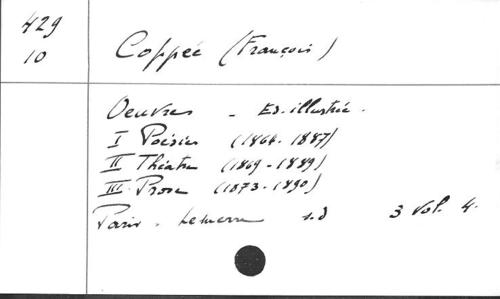 429
10
Coppée (François)
Oeuvres - Ed. illustrée.
I Poésies (1864-1887)
II Théatre (1869-1889)
III Prose (1873-1890)
Paris. Lemerre s.d 3 Vol. 4.